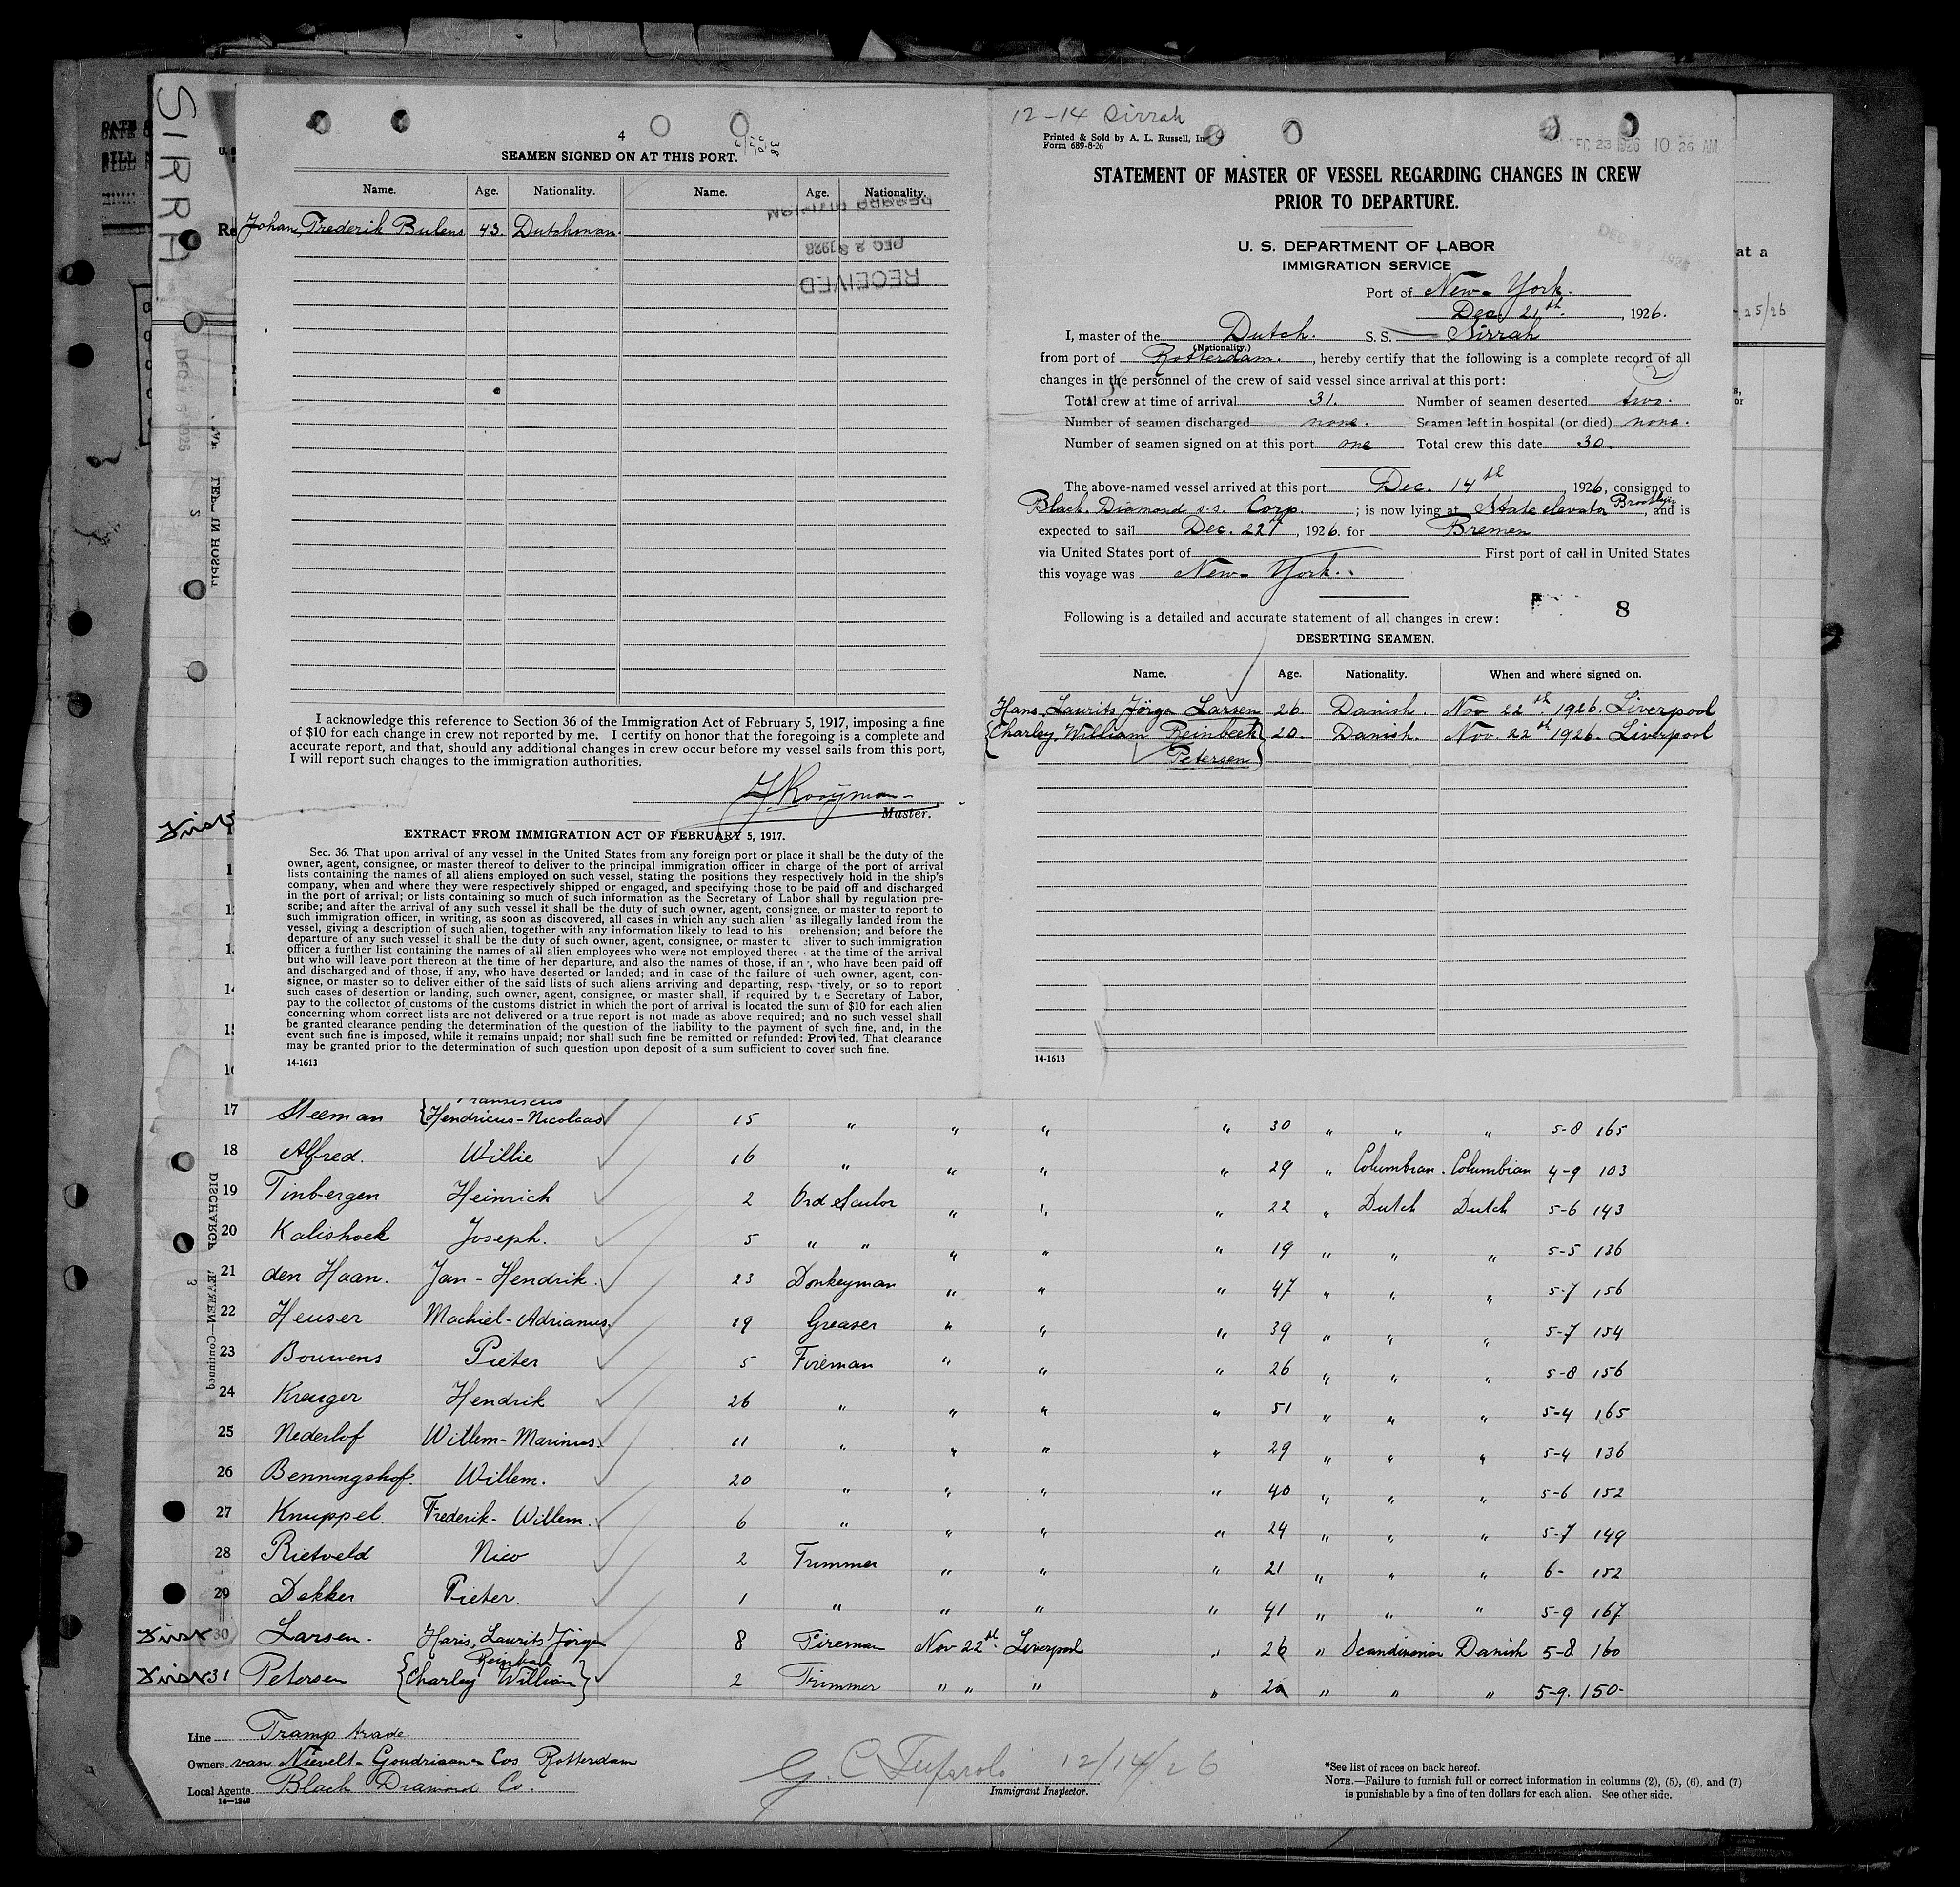 SIRRAH
4
SEAMEN SIGNED ON AT THIS PORT.
Name. Age. Nationality. Name. Age. Nationality.
Johan Frederik Bulens 43. Dutchman.
RECORD DIVISION
DEC 28 1926
RECEIVED
I acknowledge this reference to Section 36 of the Immigration Act of February 5, 1917, imposing a fine
of $10 for each change in crew not reported by me. I certify on honor that the foregoing is a complete and
accurate report, and that, should any additional changes in crew occur before my vessel sails from this port,
I will report such changes to the immigration authorities.
Kooyman
Master.
EXTRACT FROM IMMIGRATION ACT OF FEBRUARY 5, 1917.
Sec. 36. That upon arrival of any vessel in the United States from any foreign port or place it shall be the duty of the
owner, agent, consignee, or master thereof to deliver to the principal immigration officer in charge of the port of arrival
lists containing the names of all aliens employed on such vessel, stating the positions they respectively hold in the ship's
company, when and where they were respectively shipped or engaged, and specifying those to be paid off and discharged
in the port of arrival; or lists containing so much of such information as the Secretary of Labor shall by regulation pre-
scribe; and after the arrival of any such vessel it shall be the duty of such owner, agent, consignee, or master to report to
such immigration officer, in writing, as soon as discovered, all cases in which any such alien as illegally landed from the
vessel, giving a description of such alien, together with any information likely to lead to his prehension; and before the
departure of any such vessel it shall be the duty of such owner, agent, consignee, or master to eliver to such immigration
officer a further list containing the names of all alien employees who were not employed there at the time of the arrival
but who will leave port thereon at the time of her departure, and also the names of those, if any, who have been paid off
and discharged and of those, if any, who have deserted or landed; and in case of the failure of such owner, agent, con-
signee, or master so to deliver either of the said lists of such aliens arriving and departing, respectively, or so to report
such cases of desertion or landing, such owner, agent, consignee, or master shall, if required by the Secretary of Labor,
pay to the collector of customs of the customs district in which the port of arrival is located the sum of $10 for each alien
concerning whom correct lists are not delivered or a true report is not made as above required; and no such vessel shall
be granted clearance pending the determination of the question of the liability to the payment of such fine, and, in the
event such fine is imposed, while it remains unpaid; nor shall such fine be remitted or refunded: Provided, That clearance
may be granted prior to the determination of such question upon deposit of a sum sufficient to cover such fine.
14-1613
12-14 Sirrah
Printed & Sold by A. L. Russell, In
Form 689-8-26
DEC 23 1926 10 26 AM
STATEMENT OF MASTER OF VESSEL REGARDING CHANGES IN CREW
PRIOR TO DEPARTURE.
U. S. DEPARTMENT OF LABOR
IMMIGRATION SERVICE
Port of New-York.
Dec. 21th., 1926.
I, master of the Dutch. S. S. Sirrah
(Nationality.)
from port of Rotterdam., hereby certify that the following is a complete record of all
2
changes in the personnel of the crew of said vessel since arrival at this port:
Total crew at time of arrival 31. Number of seamen deserted two.
Number of seamen discharged none. Seamen left in hospital (or died) none.
Number of seamen signed on at this port one Total crew this date 30.
The above-named vessel arrived at this port Dec. 14th, 1926, consigned to
Black Diamond s.s. Corp.; is now lying at State elevator Brooklyn, and is
expected to sail Dec. 22, 1926. for Bremen
via United States port of First port of call in United States
this voyage was New-York.
8
Following is a detailed and accurate statement of all changes in crew:
DESERTING SEAMEN.
Name. Age. Nationality. When and where signed on.
Hans Laurits Jörge Larsen 26. Danish. Nov 22th 1926. Liverpool
Charley William Reinbeck 20. Danish. Nov. 22th 1926. Liverpool
Petersen
14-1613
at a
25/26
17 Steeman Hendricus-Nicolaas 15 " " " " 30 " " " 5-8 165
18 Alfred. Willie 16 " " " " 29 " Columbian. Columbian 4-9 103
19 Tinbergen Heinrich 2 Ord Sailor " " " 22 " Dutch Dutch 5-6 143
20 Kalishoek Joseph. 5 " " " " " 19 " " " 5-5 126
21 den Haan. Jan-Hendrik. 23 Donkeyman " " " 47 " " " 5-7 156
22 Heuser Machiel-Adrianus. 19 Greaser " " " 39 " " " 5-7 154
23 Bouwens Pieter 5 Fireman " " " 26 " " " 5-8 156
24 Kreuger Hendrik 26 " " " " 51 " " " 5-4 165
25 Nederlof Willem-Marinus. 11 " " " " 29 " " " 5-4 136
26 Benningshof. Willem. 20 " " " " 40 " " " 5-6 152
27 Knuppel. Frederik-Willem. 6 " " " " 24 " " " 5-7 149
28 Rietveld Nico 2 Trimmer " " " 21 " " " 6- 152
29 Dekker Pieter. 1 " " " " 41 " " " 5-9 167
30 Larsen. Hans, Laurits Jörge 8 Fireman Nov 22th. Liverpool " 26 " Scandinavian Danish 5-8 160
31 Petersen Charley William Reinbeck 2 Trimmer " " " " 20 " " " 5-9. 150-
Line Tramp trade
Owners van Nievelt-Goudriaan Cos Rotterdam
Local Agents Black Diamond Co.
14-1240
12/14/26
Immigrant Inspector.
*See list of races on back hereof.
NOTE.—Failure to furnish full or correct information in columns (2), (5), (6), and (7)
is punishable by a fine of ten dollars for each alien. See other side.